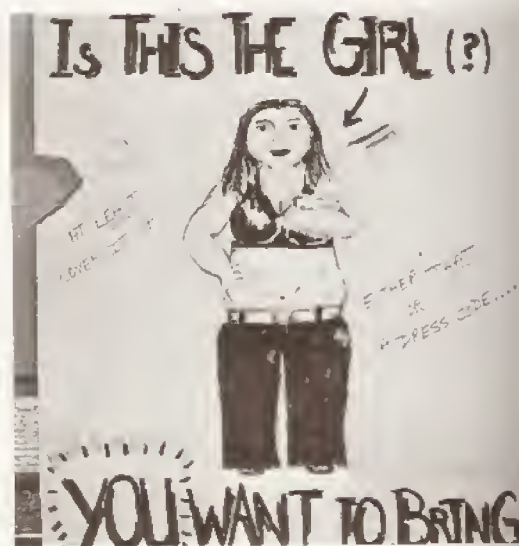 IS THIS THE GIRL (?)
AT LEAST
COVER IT
EITHER THAT
OR
A DRESS CODE....
YOU WANT TO BRING